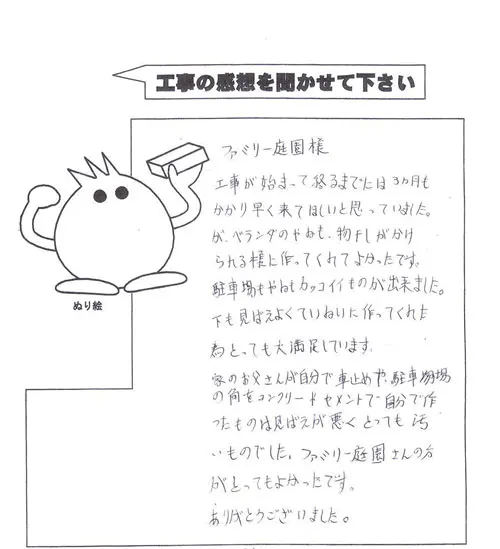 工事の感想を聞かせて下さい
ファミリー庭園様
工事が始まって終るまでには3ヵ月も
かかり早く来てほしいと思っていました。
が、ベランダのやねも、物干しがかけ
られる様に作ってくれてよかったです。
駐車場もやねもカッコイイものが出来ました。
下も見ばえよくていねいに作ってくれた
為とっても大満足しています。
家のお父さんが自分で車止めや、駐車場場
の角をコンクリートセメントで自分で作
ったものは見ばえが悪くとっても汚
いものでした。ファミリー庭園さんの方
がとってもよかったです。
ありがとうございました。
ぬり絵